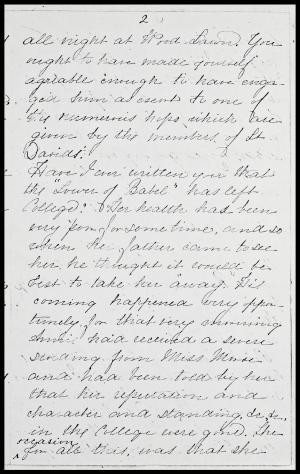 2
all night at Wood Lawn. You
might to have made yourself
agreable enough to have enga-
ged him as escort to one of
the numerous hops which are
given by the members of St
Davids!
Have I ever written you that
the "Tower of Babel" has left
College? Her health has been
very poor for some time, and so
when her father came to see
her, he thought it would be
best to take her away. His
coming happened very oppor-
tunely, for that very morning
had received a severe
from Miss
and had been told by her
that her reputation and
character and standing, &c, &c,
in the College were gone. The
occasion
for all this, was that she